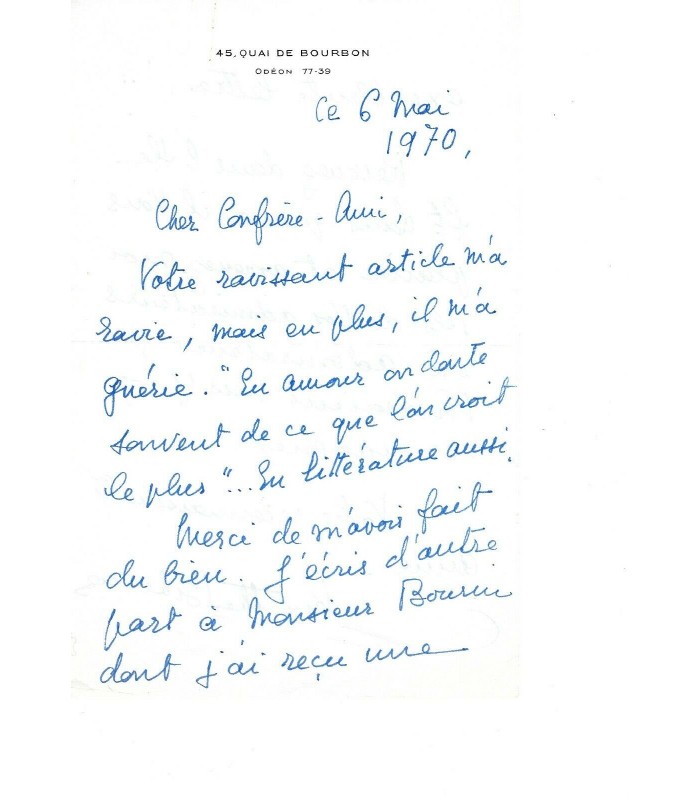 45, QUAI DE BOURBON
ODÉON 77-39
Ce 6 Mai
1970,
Cher Confrère - Ami,
Votre ravissant article m'a
ravie, mais en plus, il m'a
guérie. "En amour on doute
souvent de ce que l'on croit
le plus"... En littérature aussi.
Merci de m'avoir fait
du bien. J'écris d'autre
part à Monsieur Bourin
dont j'ai reçu une